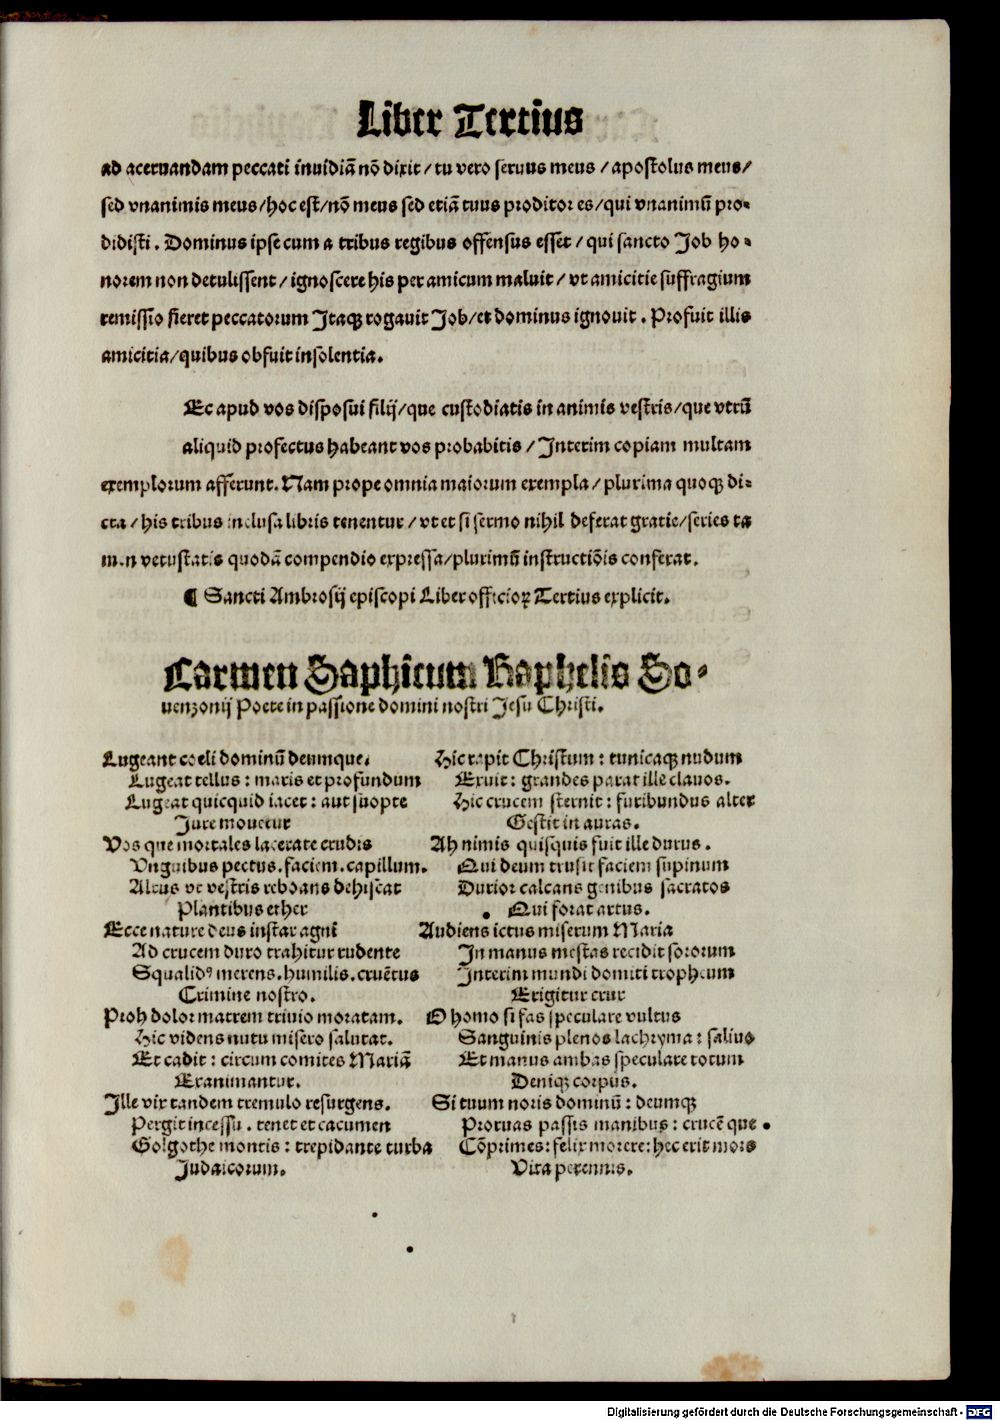 Liber Tertius
ad aceruandam peccati inuidiā nō dixit / tu vero seruus meus / apostolus meus /
sed vnanimis meus / hoc est / nō meus sed etiā tuus proditor es / qui vnanimū pro⸗
didisti . Dominus ipse cum a tribus regibus offensus esset / qui sancto Job ho⸗
norem non detulissent / ignoscere his per amicum maluit / vt amicitie suffragium
remissio fieret peccatorum Itaqꝫ rogauit Job / et dominus ignouit . Profuit illis
amicitia / quibus obfuit insolentia.
Ec apud vos disposui filij / que custodiatis in animis vestris / que vtrū
aliquid profectus habeant vos probabitis / Interim copiam multam
exemplorum afferunt. Nam prope omnia maiorum exempla / plurima quoqꝫ di⸗
cta / his tribus inclusa libris tenentur / vt et si sermo nihil deferat gratie / series ta
men vetustatis quodā compendio expressa / plurimū instructiōis conferat.
¶ Sancti Ambrosij episcopi Liber officioꝝ Tertius explicit.
Carmen Saphicum Raphelis So⸗
uenzonij Poete in passione domini nostri Jesu Christi.
Lugeant coeli dominū deumque.
Lugeat tellus : maris et profundum
Lugeat quicquid iacet : aut suopte
Jure mouetur
Vos que mortales lacerate crudis
Vnguibus pectus . faciem . capillum.
Altus vt vestris reboans dehiscat
Plantibus ether
Ecce nature deus instar agni
Ad crucem duro trahitur rudente
Squalidꝰ merens . humilis . cruētus
Crimine nostro.
Proh dolor matrem triuio moratam.
Hic videns nutu misero salutat.
Et cadit : circum comites Mariā
Exanimantur.
Ille vix tandem tremulo resurgens.
Pergit incessu . tenet et cacumen
Golgothe montis : trepidante turba
Judaicorum.
Hic rapit Christum : tunicaqꝫ nudum
Exuit : grandes parat ille clauos.
Hic crucem sternit : furibundus alter
Gestit in auras.
Ah nimis quisquis fuit ille durus .
Qui deum trusit faciem supinum
Durior calcans genibus sacratos
Qui forat artus.
Audiens ictus miserum Maria
In manus mestas recidit sororum
Interim mundi domiti tropheum
Erigitur crux
O homo si fas speculare vultus
Sanguinis plenos lachryma : saliuo
Et manus ambas speculare totum
Deniqꝫ corpus.
Si tuum noris dominū : deumqꝫ
Protuas passis manibus : crucē que
Cōprimes : felix morere : hec erit mors
Vita perennis.
Digitalisierung gefördert durch die Deutsche Forschungsgemeinschaft - DFG